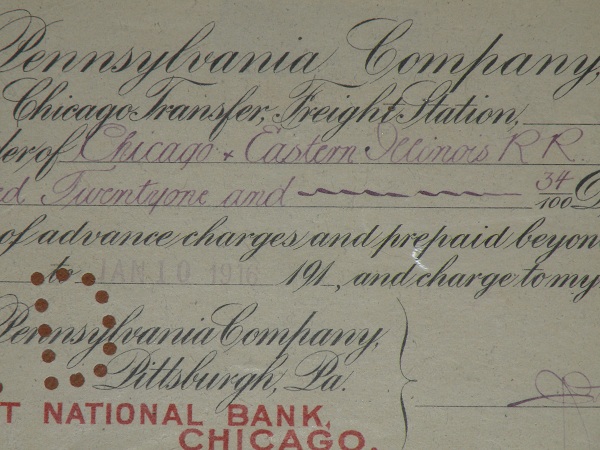 Pennsylvania Company,
Chicago Transfer, Freight Station,
der of Chicago + Eastern Illinois R.R.
ed Twentyone and 34/100 D
of advance charges and prepaid beyon
to JAN 10 1916 191 , and charge to my
Pennsylvania Company,
Pittsburgh, Pa.
T NATIONAL BANK,
CHICAGO.